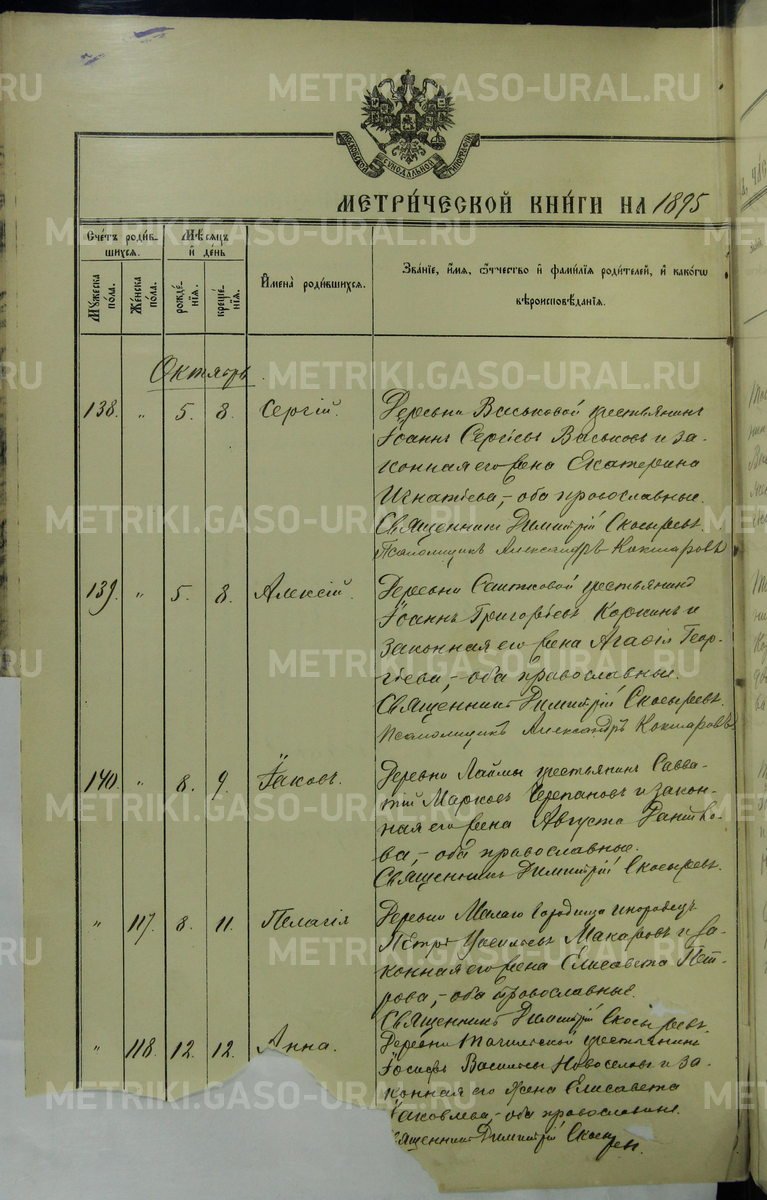 МОСКОВСКОЙ СѴНОДАЛЬНОЙ ТИПОГРАФІИ
МЕТРИ́ЧЕСКОЙ КНИ́ГИ НА 1895
Сче́тъ роди́в-
шихсѧ.
Мѣ́сѧцъ
и҆ де́нь
Мꙋ́жеска
по́ла.
Же́нска
по́ла.
рожде́-
нїѧ.
креще́-
нїѧ.
И҆мена̀ роди́вшихсѧ.
Зва́нїе, и҆́мѧ, ѻ҆́тчество и҆ фами́лїѧ роди́телей, и҆ како́гѡ
вѣроисповѣ́данїѧ.
Октябрь.
138. " 5. 8. Сергій. Деревни Васьковой крестьянинъ
Іоаннъ Сергіевъ Васьковъ и за-
конная его жена Екатерина
Игнатіева, – оба православные.
Священникъ Димитрій Скосыревъ.
Псаломщикъ Александръ Кокшаровъ
139. " 5. 8. Алексій. Деревни крестьянинъ
Іоаннъ Григорьевъ и
законная его жена Агафія Геор-
гіева, – оба православные.
Священникъ Димитрій Скосыревъ.
Псаломщикъ Александръ Кокшаровъ
140. " 8. 9. Іаковъ. Деревни Лаймы крестьянинъ Савва-
тій Марковъ Черепановъ и закон-
ная его жена Августа
ва, – оба православные.
Священникъ Димитрій Скосыревъ.
" 117. 8. 11. Пелагія Деревни Малаго Городища инородецъ
Петръ Макаровъ и за-
конная его жена Елисавета Пет-
рова, – оба православные.
Священникъ Димитрій Скосыревъ.
" 118. 12. 12. Анна. Деревни крестьянинъ
Іосифъ Васильевъ Новоселовъ и за-
конная его жена Елисавета
Іаковлева, – оба православные.
священникъ Димитрій
METRIKI.GASO-URAL.RU